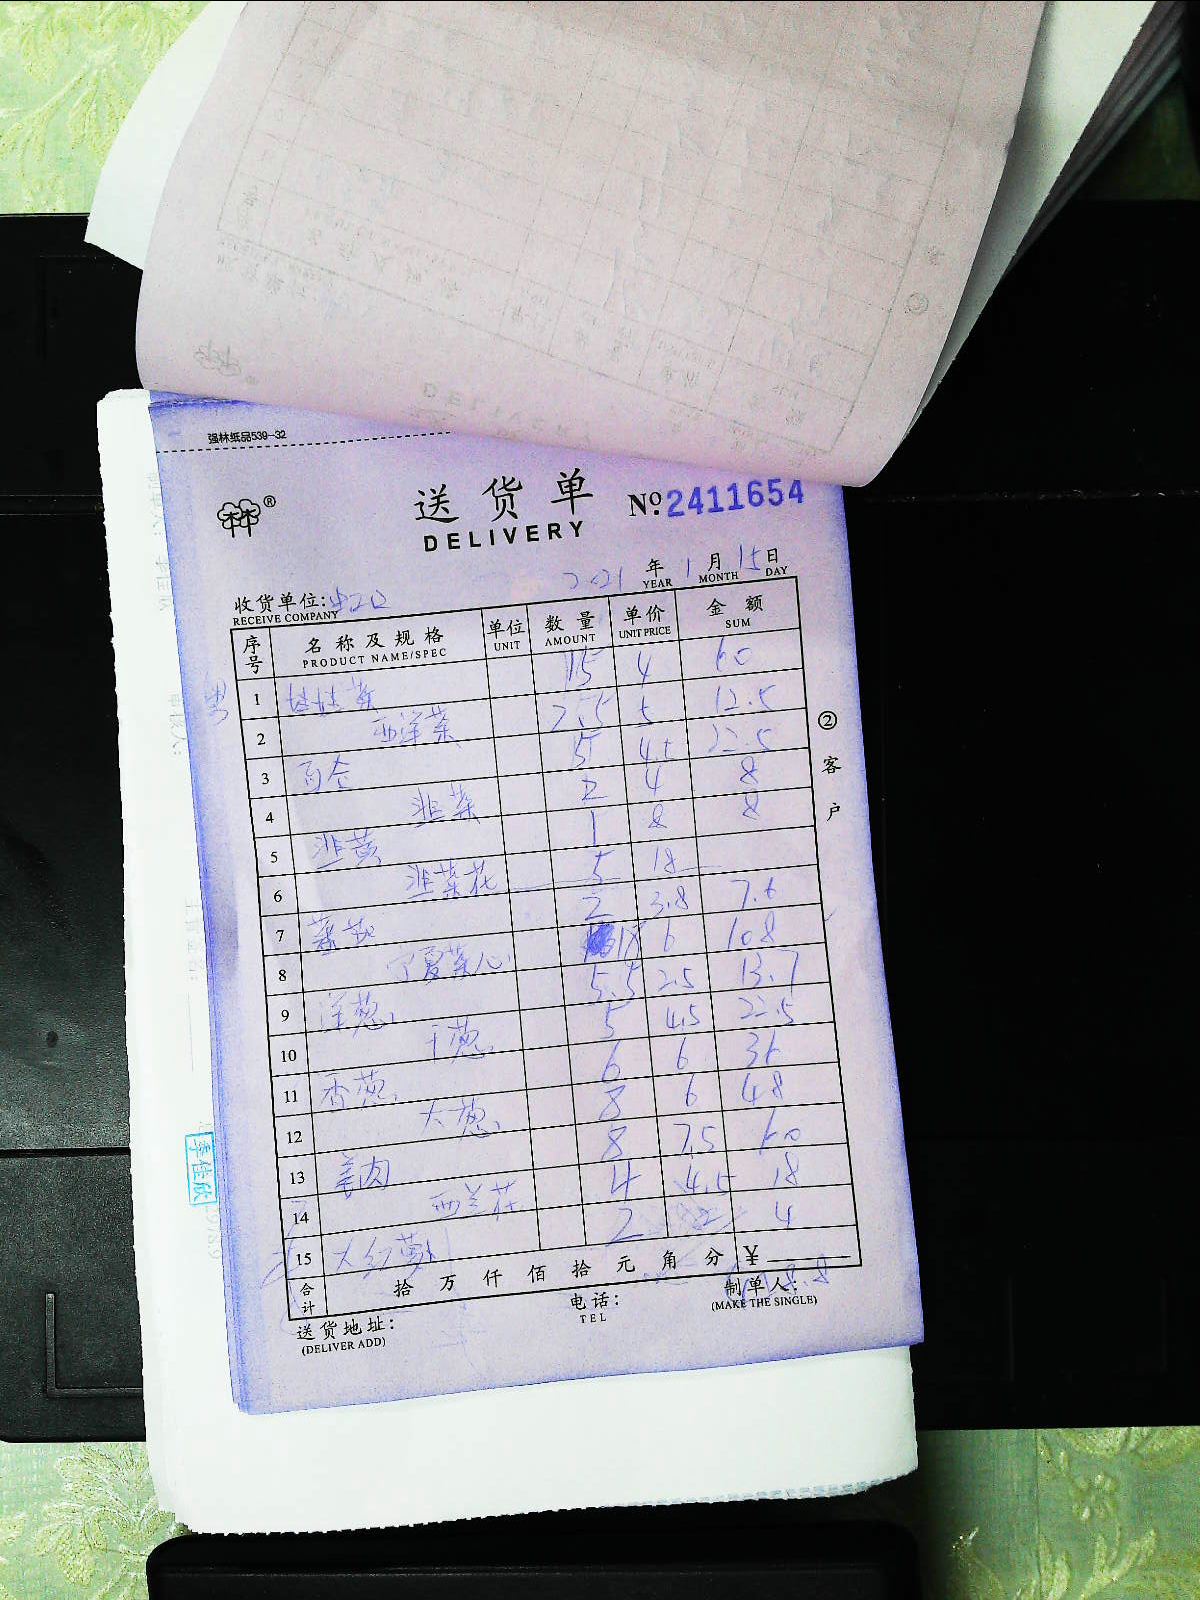 强林纸品539-32
送货单 No.2411654
DELIVERY
2021 年 1 月 15 日
YEAR MONTH DAY
收货单位:
RECEIVE COMPANY
序号 名称及规格 单位 数量 单价 金额
PRODUCT NAME/SPEC UNIT AMOUNT UNIT PRICE SUM
1 15 4 60
2 西洋菜 2.5 5 12.5
3 百合 5 4.5 22.5
4 韭菜 2 4 8
5 韭黄 1 8 8
6 韭菜花 5 18
7 2 3.8 7.6
8 宁夏菜心 18 6 108
9 洋葱 5.5 2.5 13.7
10 干葱 5 4.5 22.5
11 香葱 6 6 36
12 大葱 8 6 48
13 姜肉 8 7.5 60
14 西兰花 4 4.5 18
15 大红萝卜 2 2 4
合计 拾万仟佰拾元角分 ¥
送货地址: 电话: 制单人:
(DELIVER ADD) TEL (MAKE THE SINGLE)
②客户
李佳欣